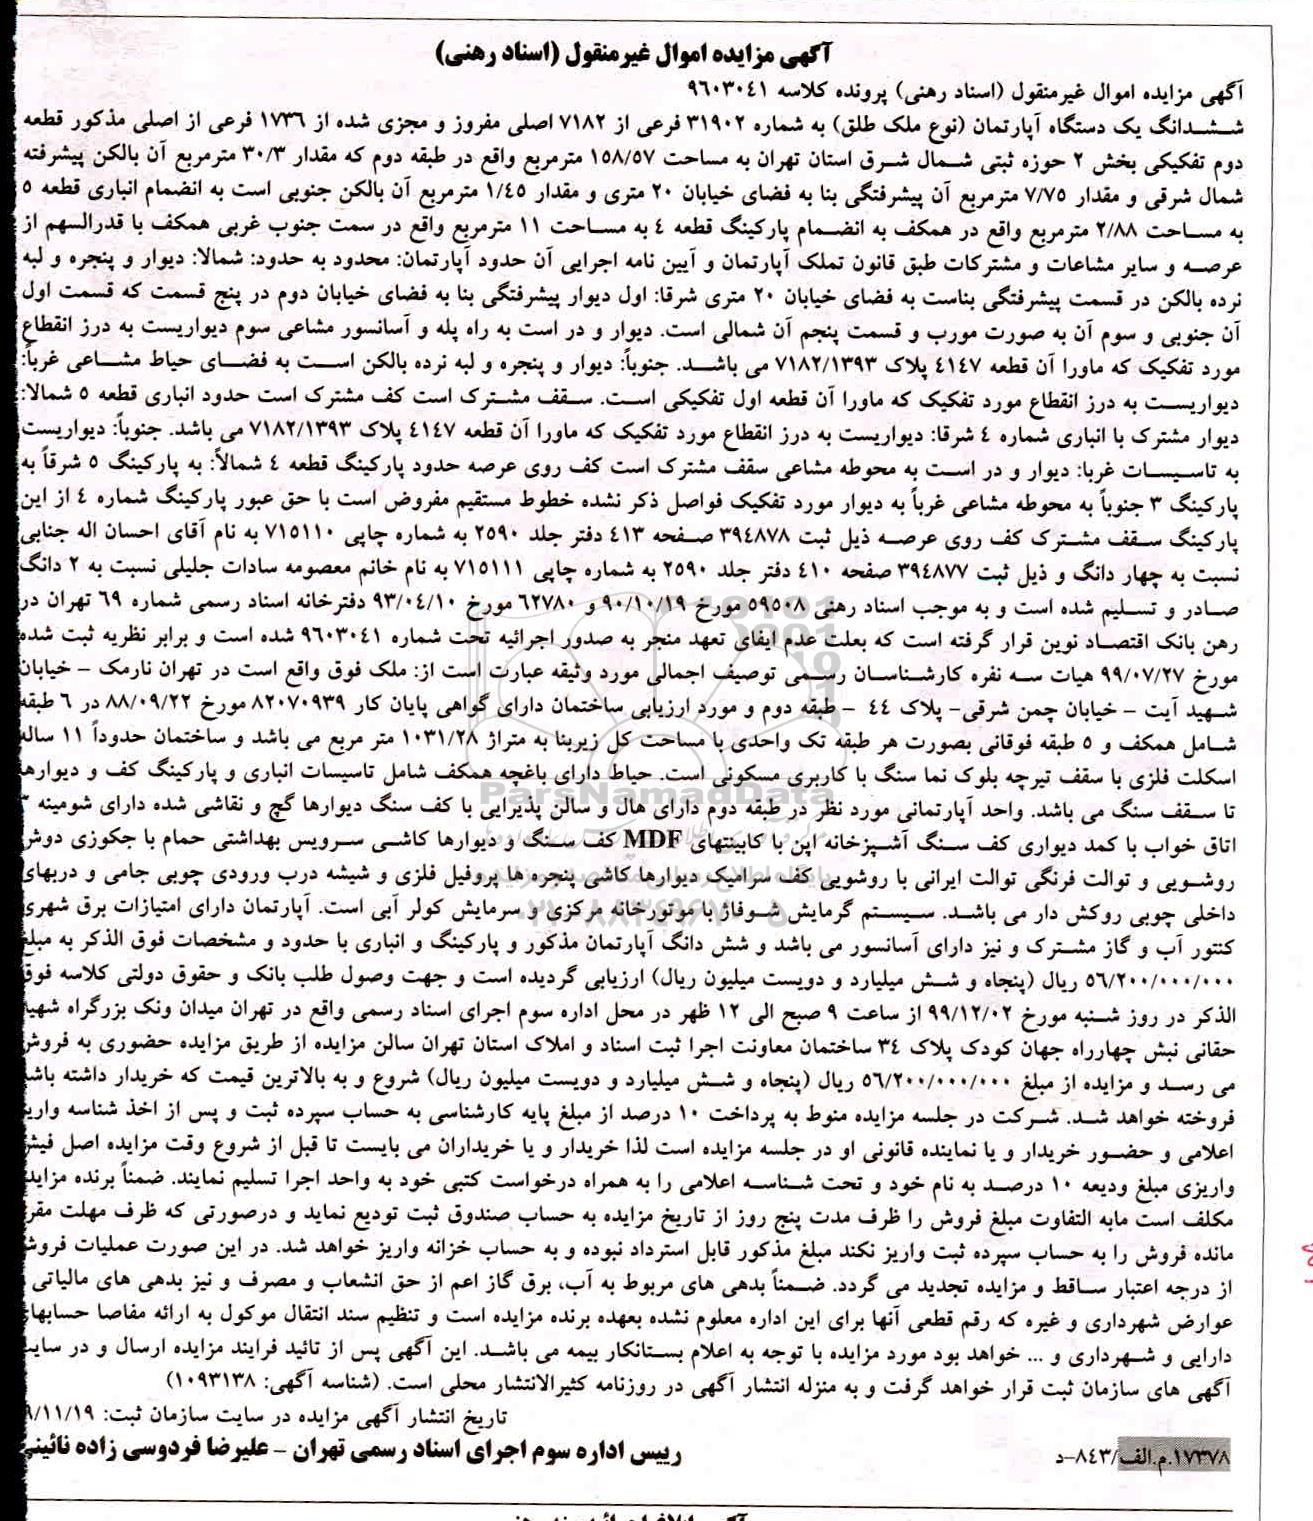 آگهی مزایده اموال غیرمنقول (اسناد رهنی)
آگهی مزایده اموال غیرمنقول (اسناد رهنی) پرونده کلاسه ۹۶۰۳۰۴۱
ششدانگ یک دستگاه آپارتمان (نوع ملک طلق) به شماره ۳۱۹۰۲ فرعی از ۷۱۸۲ اصلی مفروز و مجزی شده از ۱۷۳۶ فرعی از اصلی مذکور قطعه
دوم تفکیکی بخش ۲ حوزه ثبتی شمال شرق استان تهران به مساحت ۱۵۸/۵۷ مترمربع واقع در طبقه دوم که مقدار ۳۰/۳ مترمربع آن بالکن پیشرفته
شمال شرقی و مقدار ۷/۷۵ مترمربع آن پیشرفتگی بنا به فضای خیابان ۲۰ متری و مقدار ۱/۴۵ مترمربع آن بالکن جنوبی است به انضمام انباری قطعه ۵
به مساحت ۲/۸۸ مترمربع واقع در همکف به انضمام پارکینگ قطعه ٤ به مساحت ۱۱ مترمربع واقع در سمت جنوب غربی همکف با قدرالسهم از
عرصه و سایر مشاعات و مشترکات طبق قانون تملک آپارتمان و آیین نامه اجرایی آن حدود آپارتمان: محدود به حدود: شمالا: دیوار و پنجره و لبه
نرده بالکن در قسمت پیشرفتگی بناست به فضای خیابان ۲۰ متری شرقا: اول دیوار پیشرفتگی بنا به فضای خیابان دوم در پنج قسمت که قسمت اول
آن جنوبی و سوم آن به صورت مورب و قسمت پنجم آن شمالی است. دیوار و در است به راه پله و آسانسور مشاعی سوم دیواریست به درز انقطاع
مورد تفکیک که ماورا آن قطعه ٤١٤٧ پلاک ۷۱۸۲/۱۳۹۳ می باشد. جنوباً: دیوار و پنجره و لبه نرده بالکن است به فضای حیاط مشاعی غرباً:
دیواریست به درز انقطاع مورد تفکیک که ماورا آن قطعه اول تفکیکی است. سقف مشترک است کف مشترک است حدود انباری قطعه ۵ شمالا:
دیوار مشترک با انباری شماره ٤ شرقا: دیواریست به درز انقطاع مورد تفکیک که ماورا آن قطعه ٤١٤٧ پلاک ۷۱۸۲/۱۳۹۳ می باشد. جنوباً: دیواریست
به تاسیسات غربا: دیوار و در است به محوطه مشاعی سقف مشترک است کف روی عرصه حدود پارکینگ قطعه ٤ شمالاً: به پارکینگ ۵ شرقاً به
پارکینگ ۳ جنوباً به محوطه مشاعی غرباً به دیوار مورد تفکیک فواصل ذکر نشده خطوط مستقیم مفروض است با حق عبور پارکینگ شماره ٤ از این
پارکینگ سقف مشترک کف روی عرصه ذیل ثبت ۳۹٤۸۷۸ صفحه ٤١٣ دفتر جلد ۲۵۹۰ به شماره چاپی ۷۱۵۱۱۰ به نام آقای احسان اله جنابی
نسبت به چهار دانگ و ذیل ثبت ۳۹٤۸۷۷ صفحه ٤١٠ دفتر جلد ۲۵۹۰ به شماره چاپی ۷۱۵۱۱۱ به نام خانم معصومه سادات جلیلی نسبت به ۲ دانگ
صادر و تسلیم شده است و به موجب اسناد رهنی ۵۹۵۰۸ مورخ ۹۰/۱۰/۱۹ و ۶۲۷۸۰ مورخ ۹۳/۰۴/۱۰ دفترخانه اسناد رسمی شماره ۶۹ تهران در
رهن بانک اقتصاد نوین قرار گرفته است که بعلت عدم ایفای تعهد منجر به صدور اجرائیه تحت شماره ۹۶۰۳۰۴۱ شده است و برابر نظریه ثبت شده
مورخ ۹۹/۰۷/۲۷ هیات سه نفره کارشناسان رسمی توصیف اجمالی مورد وثیقه عبارت است از: ملک فوق واقع است در تهران نارمک – خیابان
شهید آیت – خیابان چمن شرقی- پلاک ٤٤ – طبقه دوم و مورد ارزیابی ساختمان دارای گواهی پایان کار ۸۲۰۷۰۹۳۹ مورخ ۸۸/۰۹/۲۲ در ۶ طبقه
شامل همکف و ۵ طبقه فوقانی بصورت هر طبقه تک واحدی با مساحت کل زیربنا به متراژ ۱۰۳۱/۲۸ متر مربع می باشد و ساختمان حدوداً ۱۱ ساله
اسکلت فلزی با سقف تیرچه بلوک نما سنگ با کاربری مسکونی است. حیاط دارای باغچه همکف شامل تاسیسات انباری و پارکینگ کف و دیوارها
تا سقف سنگ می باشد. واحد آپارتمانی مورد نظر در طبقه دوم دارای هال و سالن پذیرایی با کف سنگ دیوارها گچ و نقاشی شده دارای شومینه ۳
اتاق خواب با کمد دیواری کف سنگ آشپزخانه اپن با کابینتهای MDF کف سنگ و دیوارها کاشی سرویس بهداشتی حمام با جکوزی دوش
روشویی و توالت فرنگی توالت ایرانی با روشویی کف سرامیک دیوارها کاشی پنجره ها پروفیل فلزی و شیشه درب ورودی چوبی جامی و دربهای
داخلی چوبی روکش دار می باشد. سیستم گرمایش شوفاژ با موتورخانه مرکزی و سرمایش کولر آبی است. آپارتمان دارای امتیازات برق شهری
کنتور آب و گاز مشترک و نیز دارای آسانسور می باشد و شش دانگ آپارتمان مذکور و پارکینگ و انباری با حدود و مشخصات فوق الذکر به مبلغ
۵۶/۲۰۰/۰۰۰/۰۰۰ ریال (پنجاه و شش میلیارد و دویست میلیون ریال) ارزیابی گردیده است و جهت وصول طلب بانک و حقوق دولتی کلاسه فوق
الذکر در روز شنبه مورخ ۹۹/۱۲/۰۲ از ساعت ۹ صبح الی ۱۲ ظهر در محل اداره سوم اجرای اسناد رسمی واقع در تهران میدان ونک بزرگراه شهید
حقانی نبش چهارراه جهان کودک پلاک ۳٤ ساختمان معاونت اجرا ثبت اسناد و املاک استان تهران سالن مزایده از طریق مزایده حضوری به فروش
می رسد و مزایده از مبلغ ۵۶/۲۰۰/۰۰۰/۰۰۰ ریال (پنجاه و شش میلیارد و دویست میلیون ریال) شروع و به بالاترین قیمت که خریدار داشته باشد
فروخته خواهد شد. شرکت در جلسه مزایده منوط به پرداخت ۱۰ درصد از مبلغ پایه کارشناسی به حساب سپرده ثبت و پس از اخذ شناسه واریز
اعلامی و حضور خریدار و یا نماینده قانونی او در جلسه مزایده است لذا خریدار و یا خریداران می بایست تا قبل از شروع وقت مزایده اصل فیش
واریزی مبلغ ودیعه ۱۰ درصد به نام خود و تحت شناسه اعلامی را به همراه درخواست کتبی خود به واحد اجرا تسلیم نمایند. ضمناً برنده مزایده
مکلف است مابه التفاوت مبلغ فروش را ظرف مدت پنج روز از تاریخ مزایده به حساب صندوق ثبت تودیع نماید و درصورتی که ظرف مهلت مقرر
مانده فروش را به حساب سپرده ثبت واریز نکند مبلغ مذکور قابل استرداد نبوده و به حساب خزانه واریز خواهد شد. در این صورت عملیات فروش
از درجه اعتبار ساقط و مزایده تجدید می گردد. ضمناً بدهی های مربوط به آب، برق گاز اعم از حق انشعاب و مصرف و نیز بدهی های مالیاتی
عوارض شهرداری و غیره که رقم قطعی آنها برای این اداره معلوم نشده بعهده برنده مزایده است و تنظیم سند انتقال موکول به ارائه مفاصا حسابهای
دارایی و شهرداری و ... خواهد بود مورد مزایده با توجه به اعلام بستانکار بیمه می باشد. این آگهی پس از تائید فرایند مزایده ارسال و در سایت
آگهی های سازمان ثبت قرار خواهد گرفت و به منزله انتشار آگهی در روزنامه کثیرالانتشار محلی است. (شناسه آگهی: ۱۰۹۳۱۳۸)
تاریخ انتشار آگهی مزایده در سایت سازمان ثبت: ۹/۱۱/۱۹
رییس اداره سوم اجرای اسناد رسمی تهران – علیرضا فردوسی زاده نائینی
۱۷۳۷۸.م.الف/۸٤۳-د
ParsNamadData